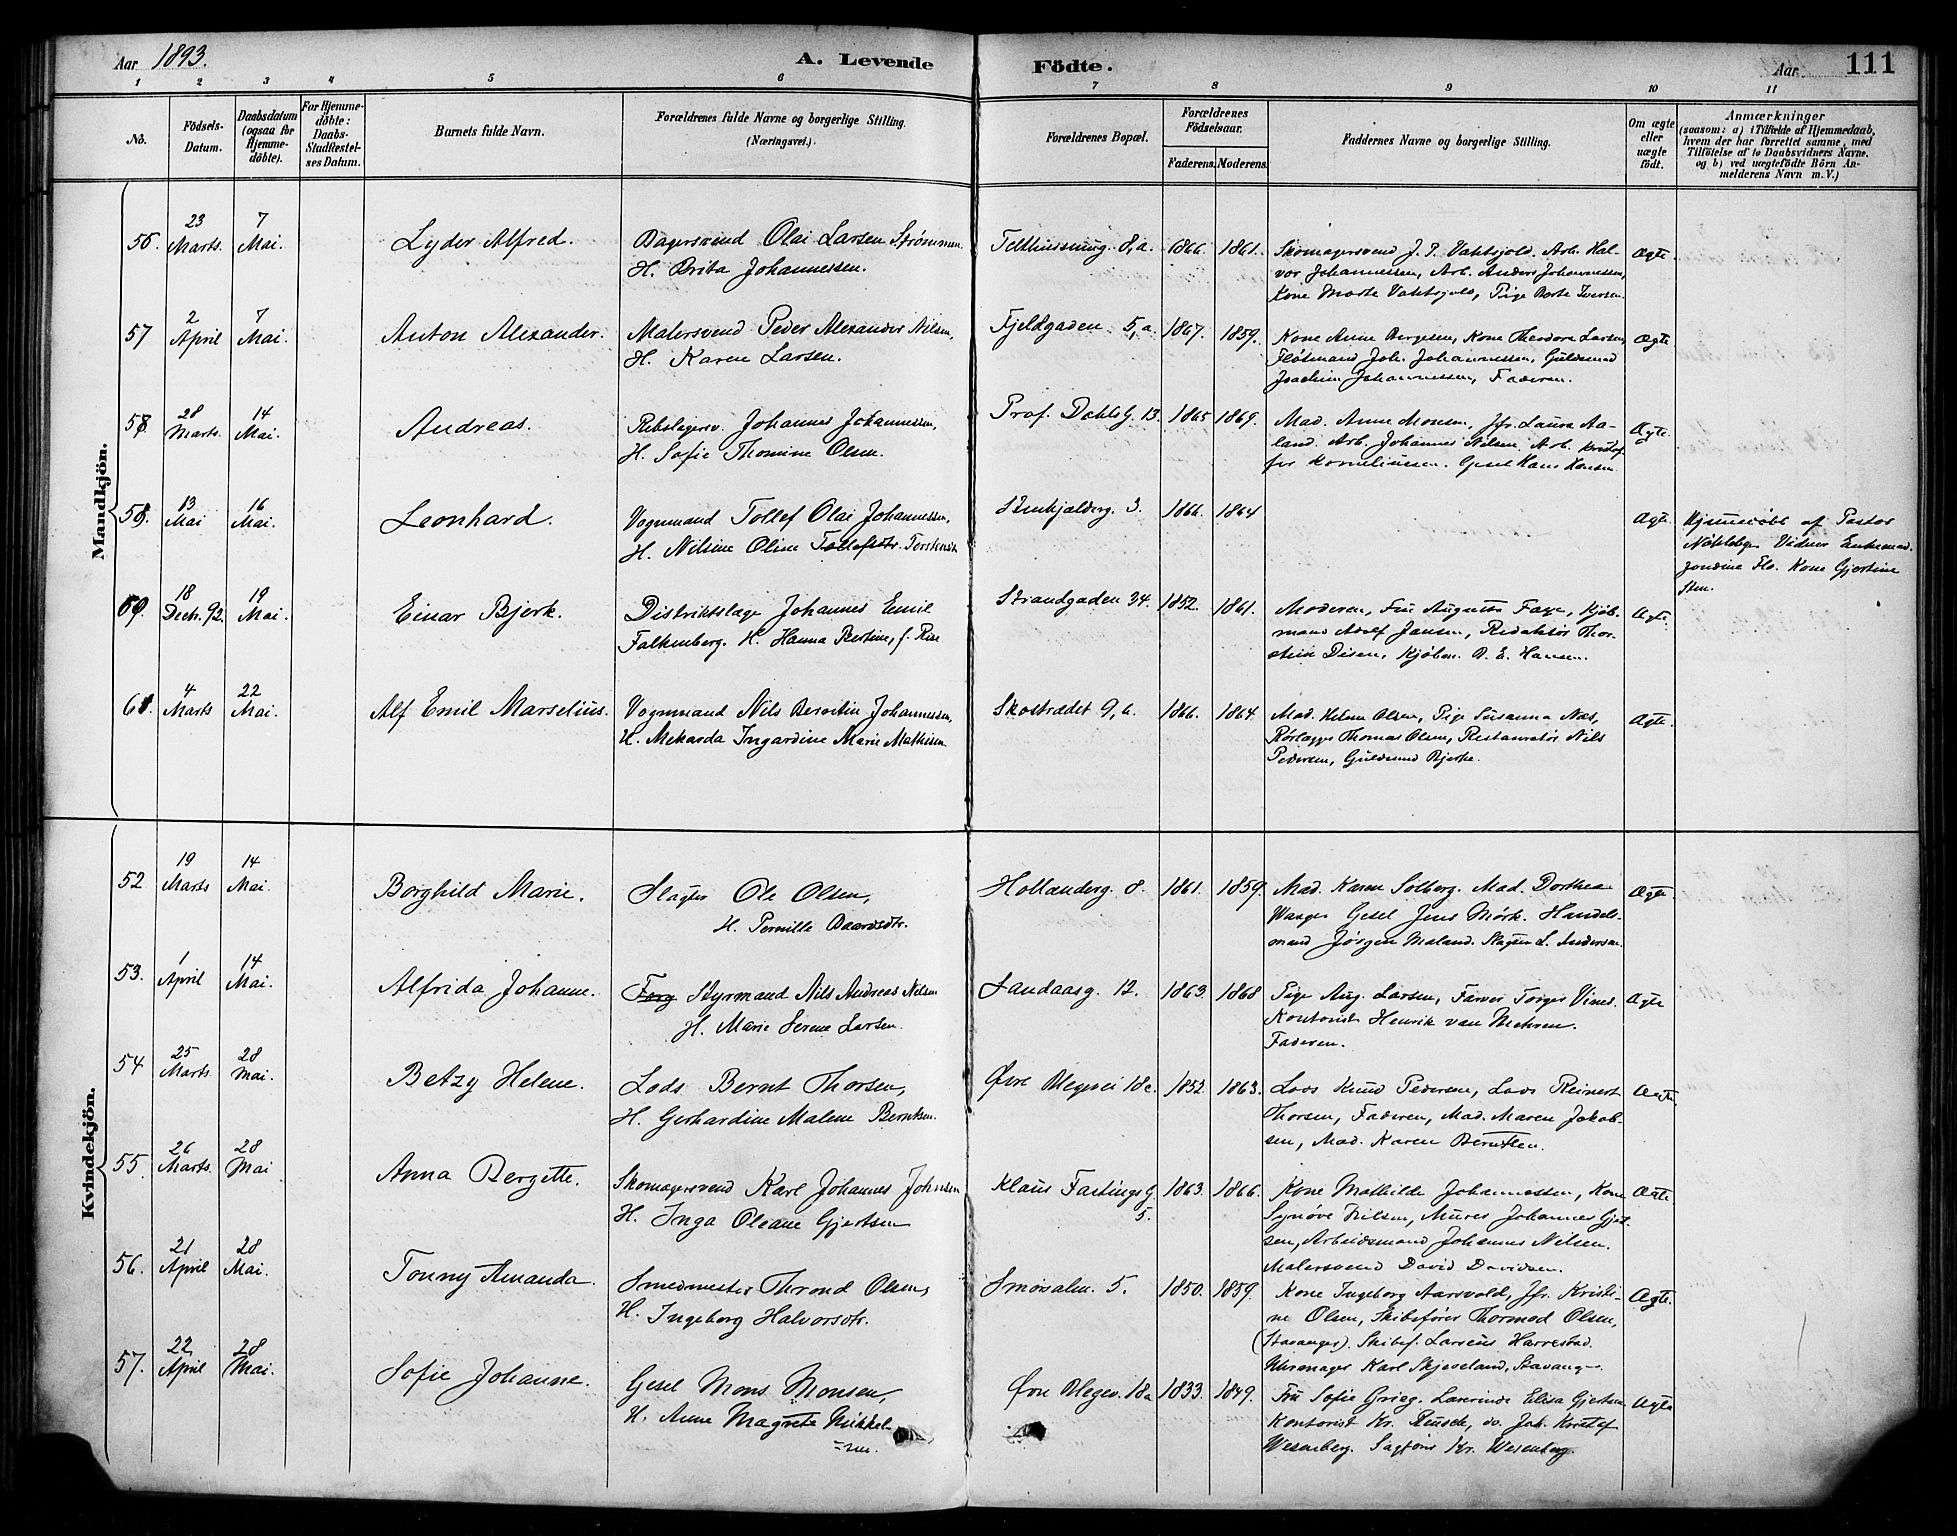 Aar 1893.
A. Levende Födte.
Aar 111
1 2 3 4 5 6 7 8 9 10 11
No.
Födsels-Datum.
Daabsdatum (ogsaa for Hjemme-döbte).
For Hjemme-döbte: Daabs-Stadfæstel-ses Datum.
Barnets fulde Navn.
Forældrenes fulde Navne og borgerlige Stilling.
(Næringsvei.)
Forældrenes Bopæl.
Forældrenes Födselsaar.
Faderens. Moderens.
Faddernes Navne og borgerlige Stilling.
Om ægte eller uægte födt.
Anmærkninger
(saasom: a) i Tilfælde af Hjemmedaab,
hvem der har forrettet samme, med
Tilföielse af to Daabsvidners Navne.
og b) ved uægtefödte Börn An-
melderens Navn m. V.)
Mandkjön.
56. 23 Marts. 7 Mai. Lyder Alfred. Bagersvend Olai Larsen Strømmen. 8,a. 1866. 1861. Skomagersvend J. P. Arb. Hal- Ægte
H. Brita Johannessen. vor Johannessen, Arb. Anders Johannessen,
Kone Marte Pige Iversen.
57 2 April 7 Mai. Anton Alexander. Malersvend Peder Alexander Nilsen, Fjeldgaden 5,a. 1867. 1859. Kone Anne Børgesen, Kone Theodora Larsen, Ægte
H. Karen Larsen. Joh. Johannessen, Guldsmed
Joachim Johannessen, Faderen.
58. 28 Marts. 14 Mai. Andreas. Rebslagersv. Johannes Johannessen, Prof. Dahls G. 13. 1865 1869. Mad. Anne Monsen, Jfr. Laura Aa- Ægte.
H. Sofie Thomine Olsen. land. Arb. Johannes Nilsen. Arb. Kristof-
fer Korneliussen. Gesel Hans Hansen
59. 13 Mai 16 Mai. Leonhard. Vognmand Tollef Olai Johannessen, Stenkjelderg. 3. 1866. 1864 Ægte. Hjemmedøbt af Pastor
H. Nilsine Oline Tollefsdtr. Vidner
Kone Gjertine
60. 18 Decb. 92. 19 Mai. Einar Bjerk. Distriktslæge Johannes Emil Strandgaden 34. 1852. 1861. Moderen, Fru Augusta Faye, Kjøb- Ægte.
Falkenberg. H. Hanna f. mand Adolf Jansen, Redaktør Thor-
stein Diesen, Kjøbm. D. E. Hansen.
61. 4 Marts 22 Mai. Alf Emil Marselius. Vognmand Nils Johannessen, Skostrædet 9, 1866. 1864. Mad. Olsen, Pige Susanna Næs, Ægte.
H. Ingardine Marie Mathisen. Rørlægger Thomas Olsen, Restauratør Nils
Pedersen, Guldsmed Bjerke.
Kvindekjön.
52 19 Marts 14 Mai. Borghild Marie. Slagter Ole Olsen, Hollenderg. 8. 1861. 1859. Mad. Karen Solberg. Mad. Dorthea Ægte.
H. Pernille Baardsdtr. Gesel Jens Mørk. Handels-
mand Jørgen Maland. Slagter L. Andersen.
53. 1 April 14 Mai. Alfrida Johanne. Styrmand Nils Andreas Nilsen Landaasg. 12. 1863. 1868 Pige Aug. Larsen, Farver Torger Vines. Ægte
H. Marie Serene Larsen. Kontorist Henrik van Mehren.
Faderen.
54 25 Marts. 28 Mai. Betzy Helene. Lods Bernt Thorsen, Øvre Blegevei 18a. 1852. 1863. Lods Knud Pedersen, Lods Reinert Ægte.
H. Gerhardine Malene Berntsen. Thorsen, Faderen, Mad. Maren Jakob-
sen, Mad. Karen Berntsen.
55. 26 Marts. 28 Mai Anna Bergitte. Skomagersvend Karl Johannes Johnsen Klaus Fastings G. 1863. 1866. Kone Mathilde Johannessen, Kone Ægte
H. Inga Oleane Gjertsen 5. Synøve Nilsen, Murer Johannes Gjert-
sen, Arbeidsmand Johannes Nilsen.
Malersvend David Davidsen.
56. 21 April 28 Mai. Tonny Amanda. Smedmester Thrond Olsen, Smørsalm. 5. 1850. 1859. Kone Ingeborg Aarsvold, Jfr. Kristi- Ægte.
H. Ingeborg Halvorsdtr. ne Olsen, Skibsfører Thormod Olsen,
(Stavanger). Skibsf. Larsius
Uhrmager Karl Skjeseland, Stavang-
57. 22 April 28 Mai. Sofie Johanne. Gesel Mons Monsen, Øvre Blegev. 18a 1833. 1849. Fru Sofie Grieg. Lærerinde Elisa Gjertsen Ægte
H. Anne Magrete Mikkel- Kontorist Kr. Reusch, do. Joh. Kristof
-sen. Wesenberg. Sagfører Kr. Wesenberg.